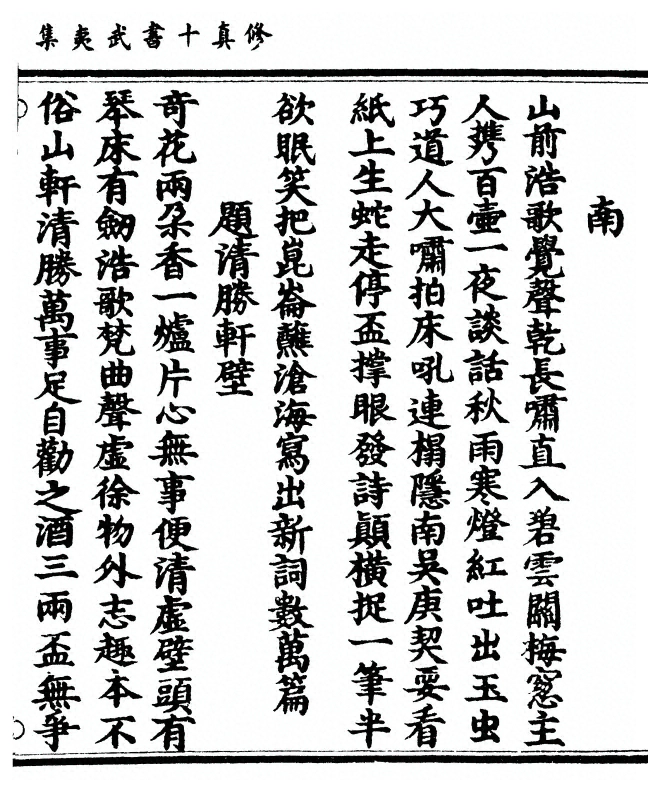 修真十書武夷集
南
山前浩歌覺聲乾長嘯直入碧雲關梅窓主
人携百壷一夜談話秋雨寒燈紅吐出玉虫
巧道人大嘯拍床吼連榻隱南吴庚契要看
紙上生蛇走停盃撑眼發詩顛橫捉一筆半
欲眠笑把崑崙蘸滄海寫出新詞數萬篇
題清勝軒壁
奇花兩朶香一爐片心無事便清虚壁頭有
琴床有劒浩歌梵曲聲虚徐物外志趣本不
俗山軒清勝萬事足自勸之酒三兩盃無爭